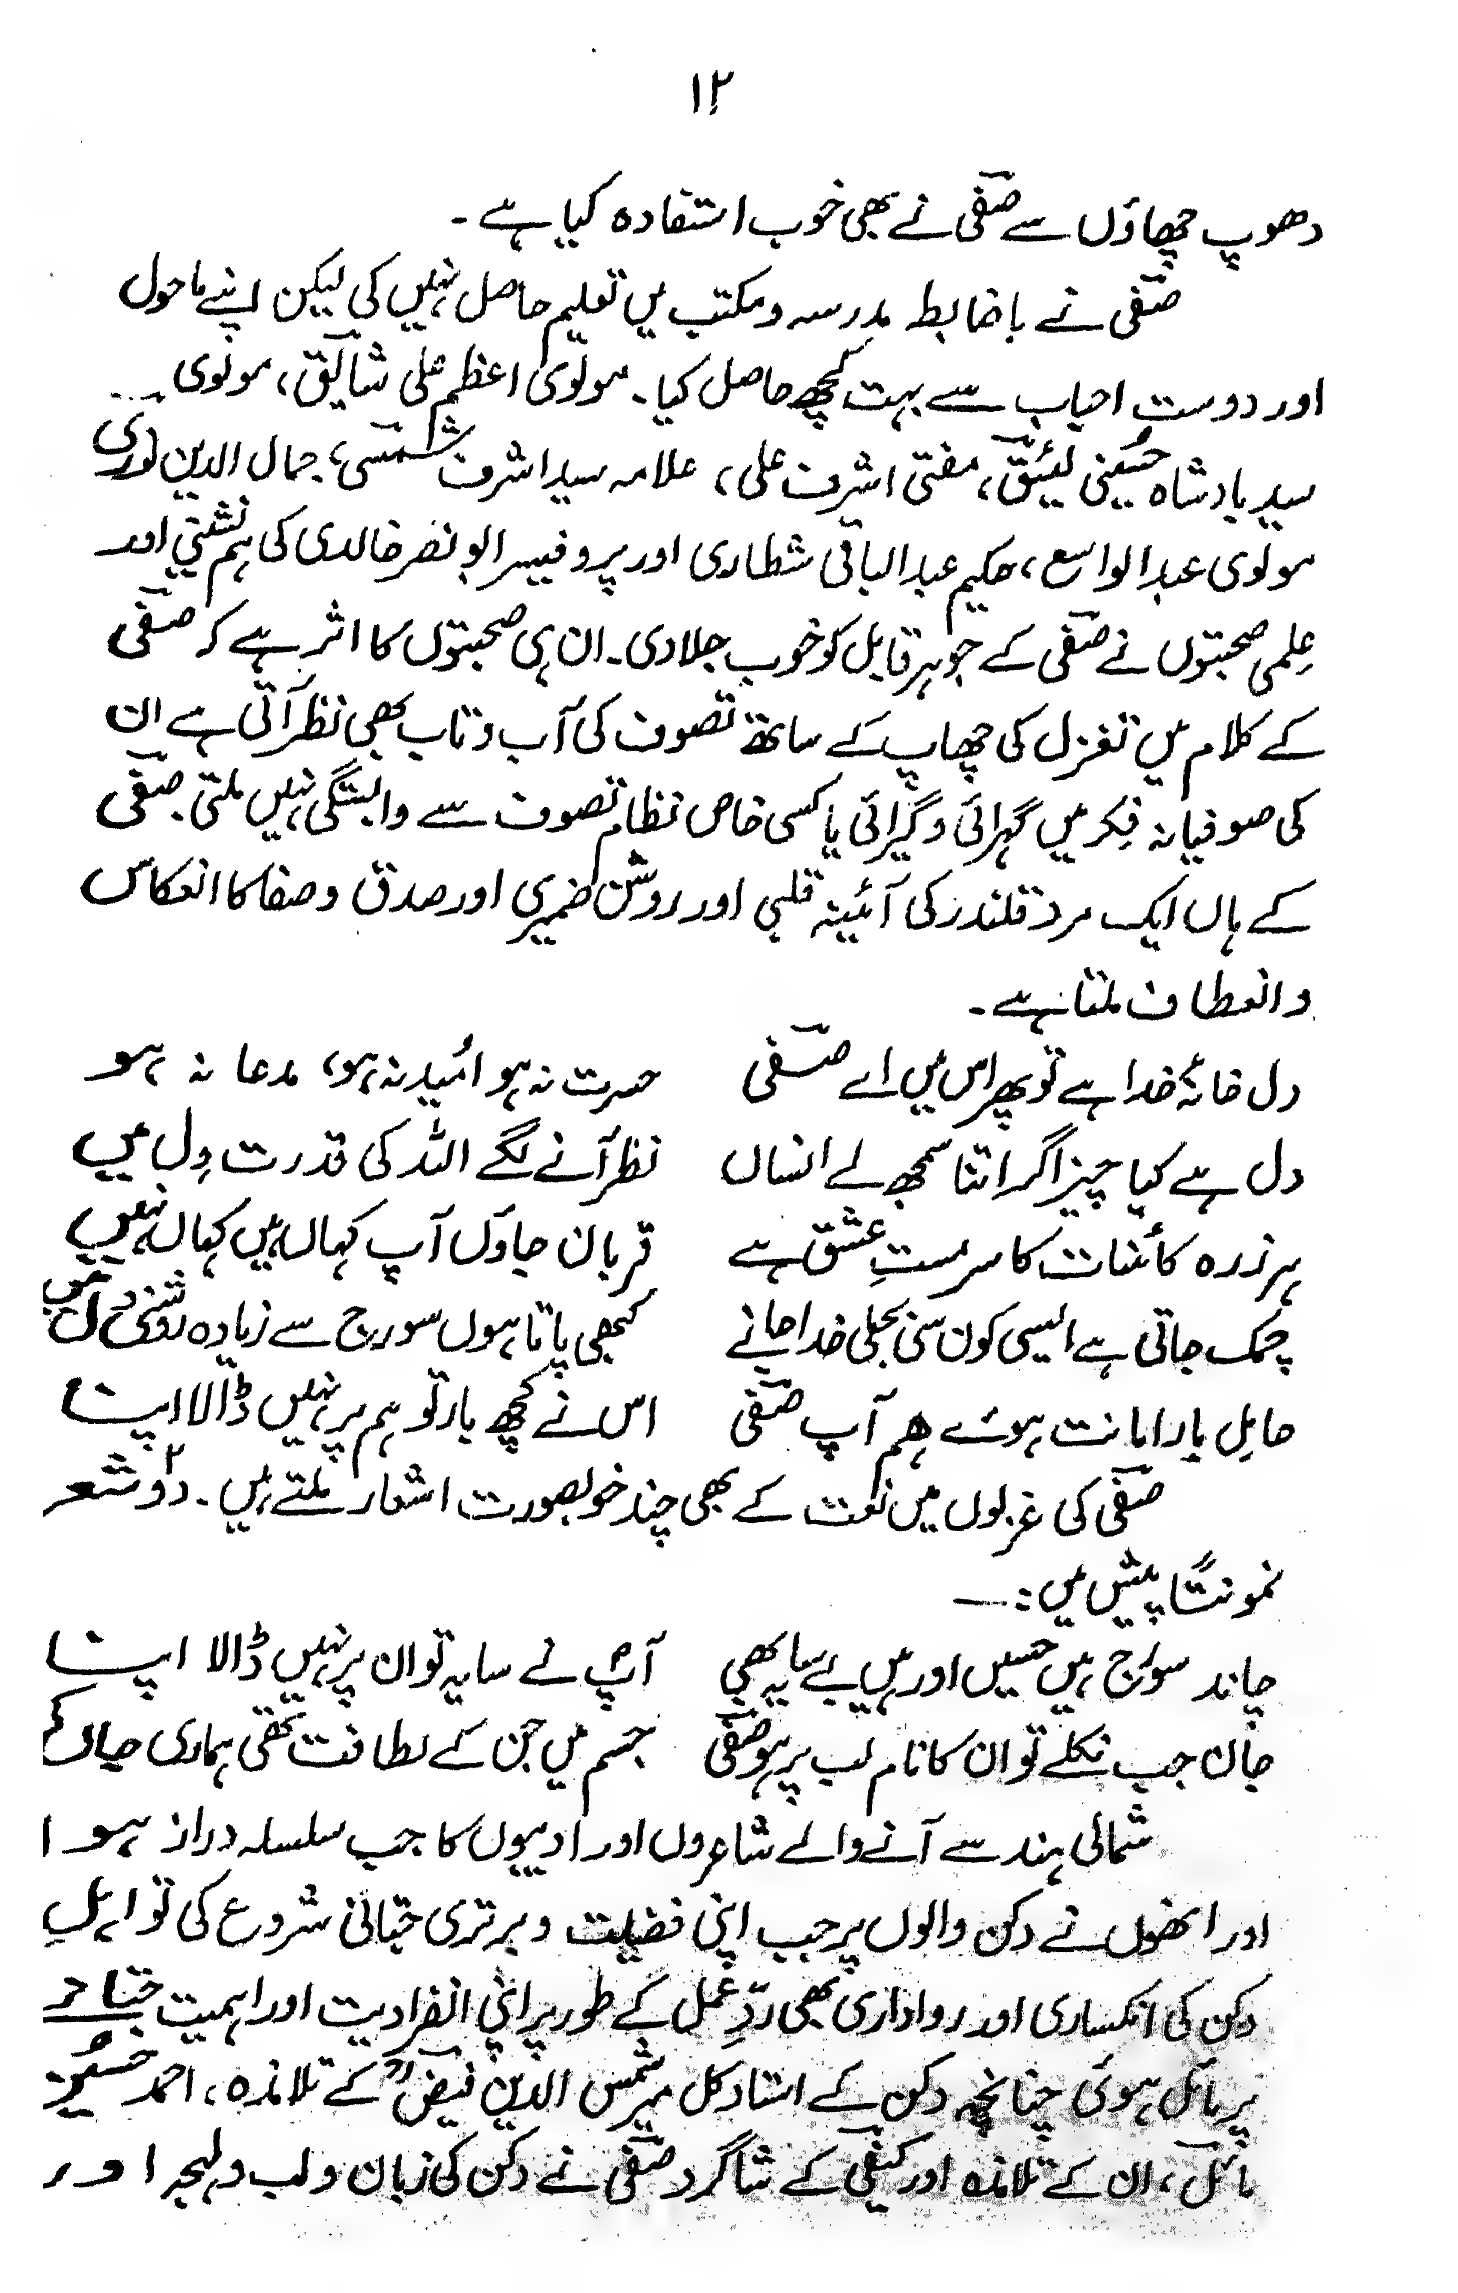 ۱۲
دھوپ چھاؤں سے صفیؔ نے بھی خوب استفادہ کیا ہے۔
صفیؔ نے باضابطہ مدرسہ و مکتب میں تعلیم حاصل نہیں کی لیکن اپنے ماحول
اور دوست احباب سے بہت کچھ حاصل کیا۔ مولوی اعظم علی شائقؔ، مولوی
سید بادشاہ حسینی لئیقؔ، مفتی اشرف علی، علامہ سید اشرف شمسیؔ، جمال الدین نوریؔ
مولوی عبدالواسع، حکیم عبدالباقی شطاری اور پروفیسر ابونصر خالدی کی ہم نشینی اور
علمی صحبتوں نے صفیؔ کے جوہر قابل کو خوب جلا دی۔ ان ہی صحبتوں کا اثر ہے کہ صفیؔ
کے کلام میں تغزل کی چھاپ کے ساتھ تصوف کی آب و تاب بھی نظر آتی ہے ان
کی صوفیانہ فِکر میں گہرائی و گیرائی یا کسی خاص نظام تصوف سے وابستگی نہیں ملتی۔ صفیؔ
کے ہاں ایک مرد قلندر کی آئینہ قلبی اور روشن ضمیری اور صدق و صفا کا انعکاس
و انعطاف ملتا ہے۔
دل خانۂ خدا ہے تو پھر اس میں اے صفیؔ حسرت نہ ہو اُمید نہ ہو، مدعا نہ ہو
دل ہے کیا چیز اگر اتنا سمجھ لے انساں نظر آنے لگے اللہ کی قدرت دِل میں
ہر ذرہ کائنات کا سرمستِ عشق ہے قربان جاؤں آپ کہاں ہیں کہاں نہیں
چمک جاتی ہے ایسی کون سی بجلی خدا جانے کبھی پاتا ہوں سورج سے زیادہ روشنی دل میں
حامِل بار امانت ہوئے ہم آپ صفیؔ اس نے کچھ بار تو ہم پر نہیں ڈالا اپنا
صفیؔ کی غزلوں میں نعت کے بھی چند خوبصورت اشعار ملتے ہیں۔ دو۲ شعر
نمونتاً پیش ہیں:—
چاند سورج ہیں حسیں اور ہیں بے سایہ بھی آپؐ نے سایہ تو ان پر نہیں ڈالا اپنا
جان جب نکلے تو ان کا نام لب پر ہو صفیؔ جسم میں جن کے لطافت تھی ہماری جان کی
شمالی ہند سے آنے والے شاعروں اور ادیبوں کا جب سلسلہ دراز ہوا
اور انھوں نے دکن والوں پر جب اپنی فضیلت و برتری جتانی شروع کی تو اہلِ
دکن کی انکساری اور رواداری بھی ردِّ عمل کے طور پر اپنی انفرادیت اور اہمیت جتانے
پر مائل ہوئی چنانچہ دکن کے استاد کل میر شمس الدین فیضؔ کے تلامذہ، احمد حسین
مائلؔ، ان کے تلامذہ اور کیفیؔ کے شاگرد صفیؔ نے دکن کی زبان و لب و لہجہ اور